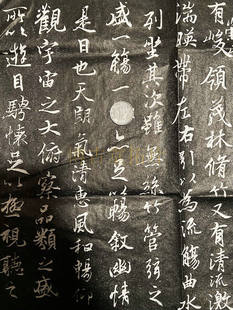 有峻領茂林脩竹又有清流激
湍暎帶左右引以為流觴曲水
列坐其次雖無絲竹管弦之
盛一觴一亦足以暢敘幽情
是日也天朗氣清惠風和暢仰
觀宇宙之大俯察品類之盛
所以遊目騁懷足以極視聽之